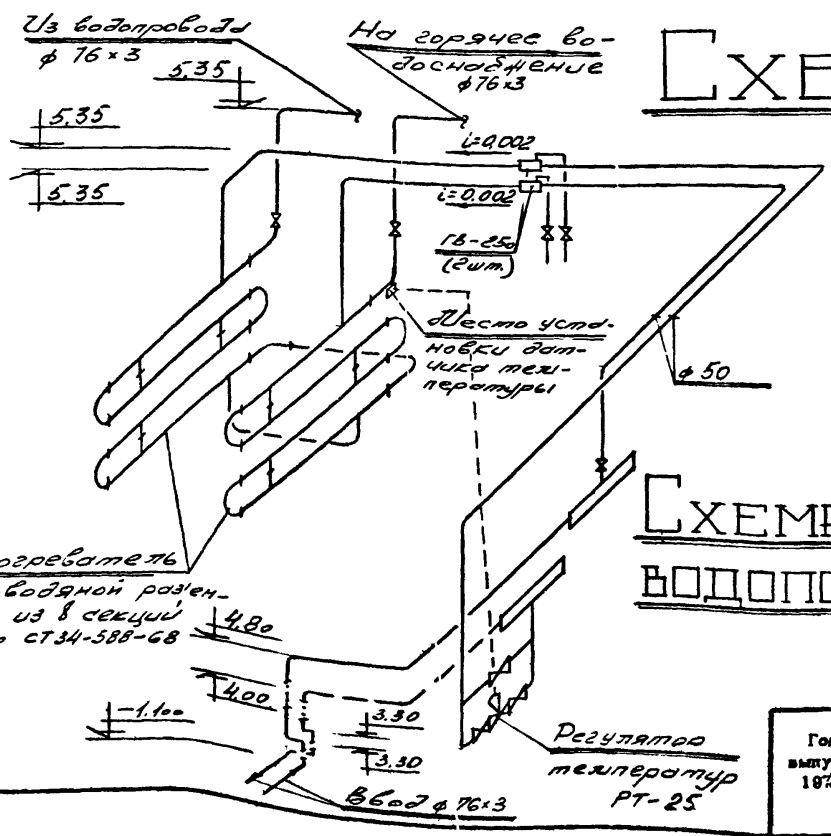 Из водопровода
ф 76×3
5.35
На горячее во-
доснабжение
ф76×3
СХЕ
5.35
5.35
i=0.002
i=0.002
ГВ-250
(2шт.)
Место уста-
новки дат-
чика тем-
пературы
ф 50
СХЕМ
ВОДОПО
огреватель
водяной раз'ем-
из 8 секций
СТ34-588-68
4.80
4.00
-1.100
3.30
3.30
Регулятор
температур
РТ-25
Ввод ф 76×3
выпу
197